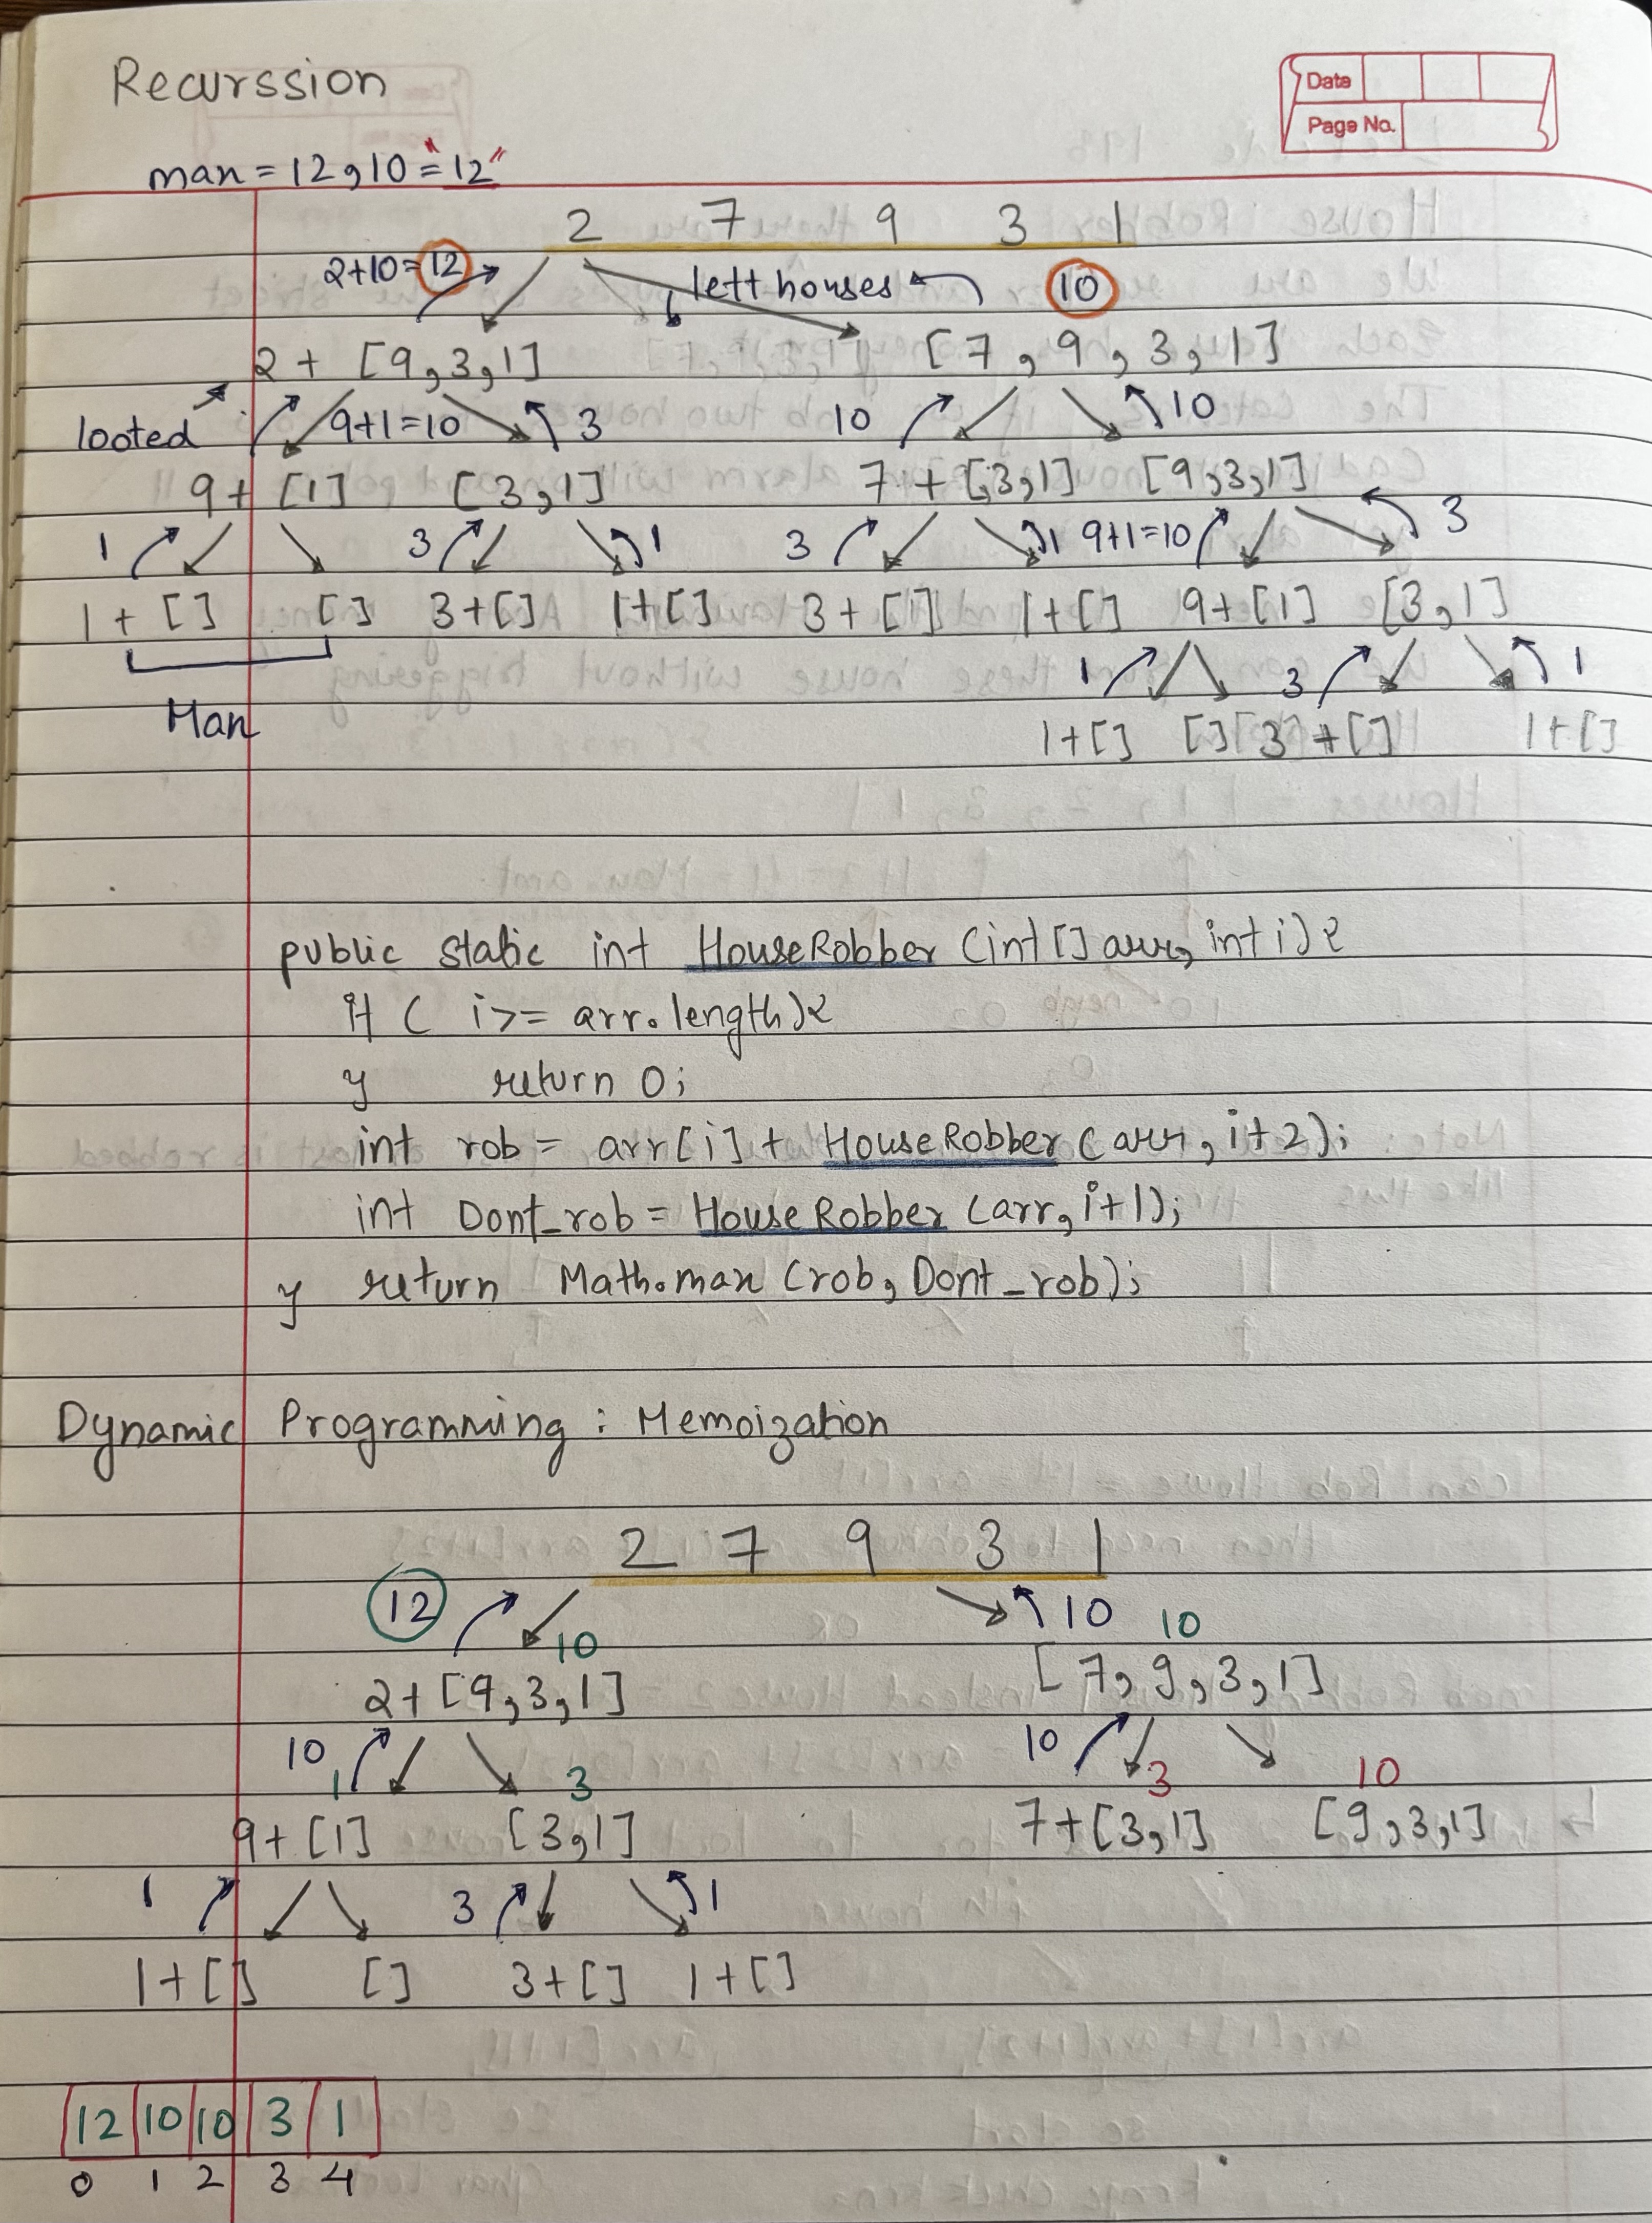 Recurssion
Date
Page No.
max = 12, 10 = "12"
2 7 9 3 1
2+10=12 left houses 10
2 + [9,3,1] [7,9,3,1]
looted 9+1=10 3 10 10
9+ [1] [3,1] 7 + [3,1] [9,3,1]
1 3 1 3 1 9+1=10 3
1 + [] [] 3+[] 1+[] 3 + [1] 1+[] 9+[1] [3,1]
1 3 1
Max 1+[] [] 3 +[] 1+[]
public static int HouseRobber (int [] arr, int i) {
if ( i >= arr.length) {
} return 0;
int rob = arr[i] + HouseRobber (arr, i+2);
int Dont_rob = HouseRobber (arr, i+1);
} return Math.max (rob, Dont_rob);
Dynamic Programming : Memoization
2 7 9 3 1
12 10 10 10
2+[9,3,1] [7,9,3,1]
10 1 3 10 3 10
9+[1] [3,1] 7+[3,1] [9,3,1]
1 3 1
1+[] [] 3+[] 1+[]
12 10 10 3 1
0 1 2 3 4